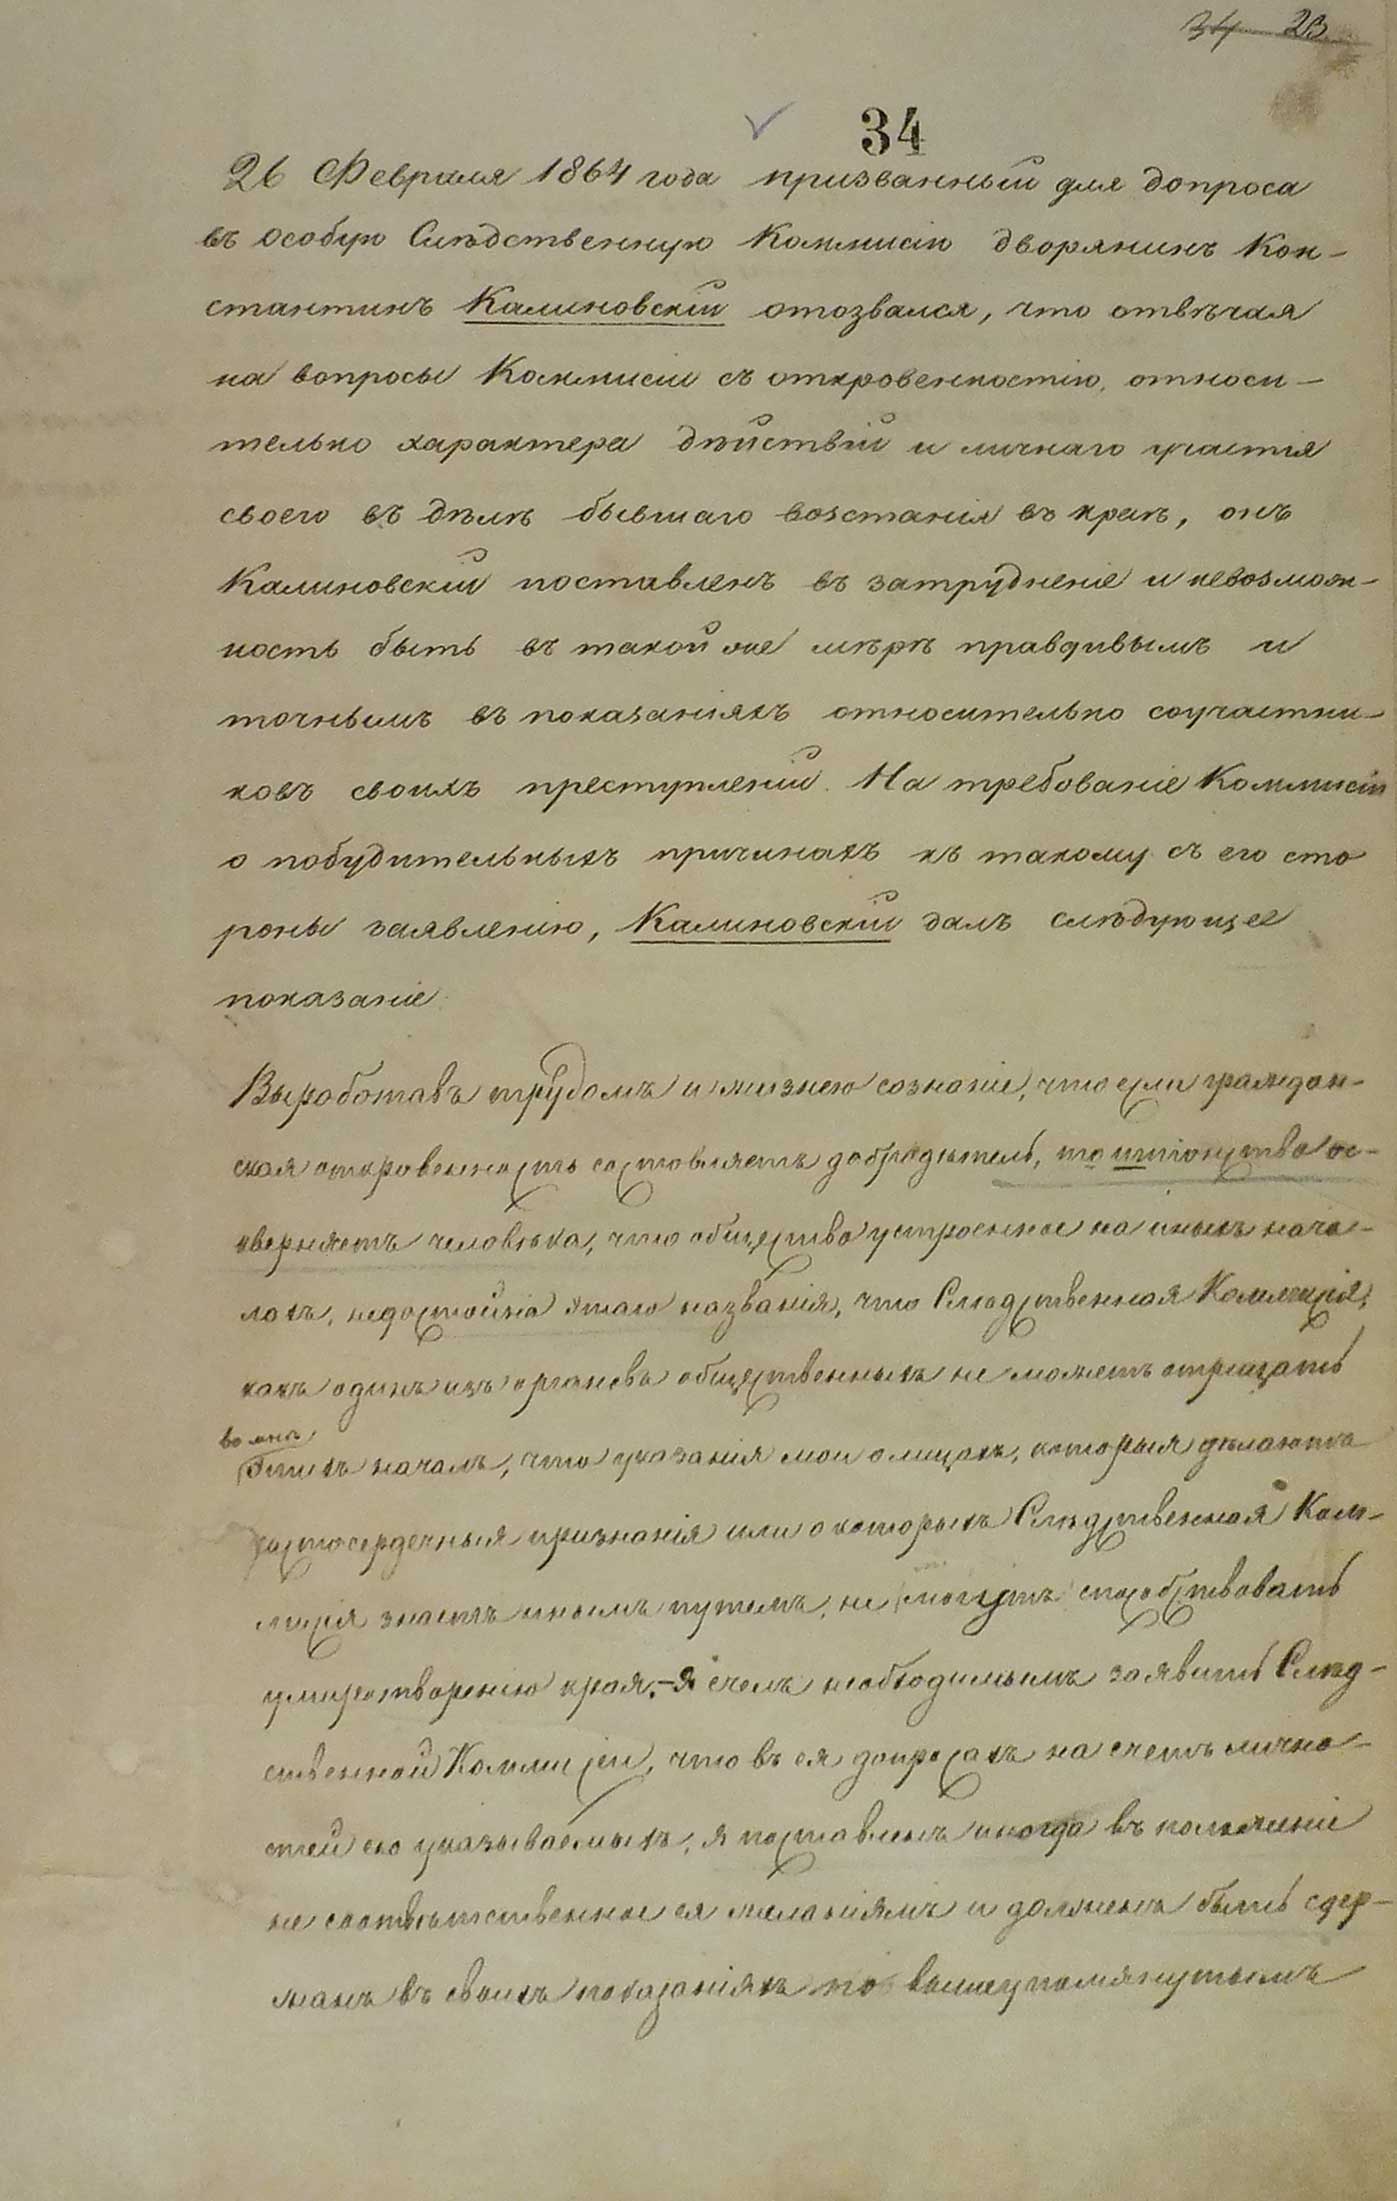 34 23
34
26 Февраля 1864 года призванный для допроса
въ особую Слѣдственную Коммисію дворянинъ Кон-
стантинъ Калиновскій отозвался, что отвѣчая
на вопросы Коммисіи съ откровенностію, относи-
тельно характера дѣйствій и личнаго участія
своего въ дѣлѣ бывшаго возстанія въ краѣ, онъ
Калиновскій поставленъ въ затрудненіе и невозмож-
ность быть въ такой же мѣрѣ правдивымъ и
точнымъ въ показаніяхъ относительно соучастни-
ковъ своихъ преступленій. На требованіе Коммисіи
о побудительныхъ причинахъ къ такому съ его сто
роны заявленію, Калиновскій далъ слѣдующее
показаніе.
Выработавъ трудомъ и жизнею сознаніе, что если граждан-
ская откровенность составляетъ добродѣтель, то шпіонство ос-
кверняетъ человѣка, что общество устроенное на иныхъ нача-
лахъ, недостойно этаго названія, что Слѣдственная Коммисія,
какъ одинъ изъ органовъ общественныхъ не можетъ отрицать
во мнѣ
этихъ началъ, что указанія мои о лицахъ, которыя дѣлаютъ
чистосердечныя признанія или о которыхъ Слѣдственная Ком-
мисія знаетъ инымъ путемъ, не могутъ способствовать
умиротворенію края, – я счелъ необходимымъ заявить Слѣд-
ственной Коммисіи, что въ ея допросахъ на счетъ лично-
стей ею указываемыхъ, я поставленъ иногда въ положеніи
не соотвѣтственное ея желаніямъ и долженъ быть сдер-
жанъ въ своихъ показаніяхъ по вышеупомянутымъ